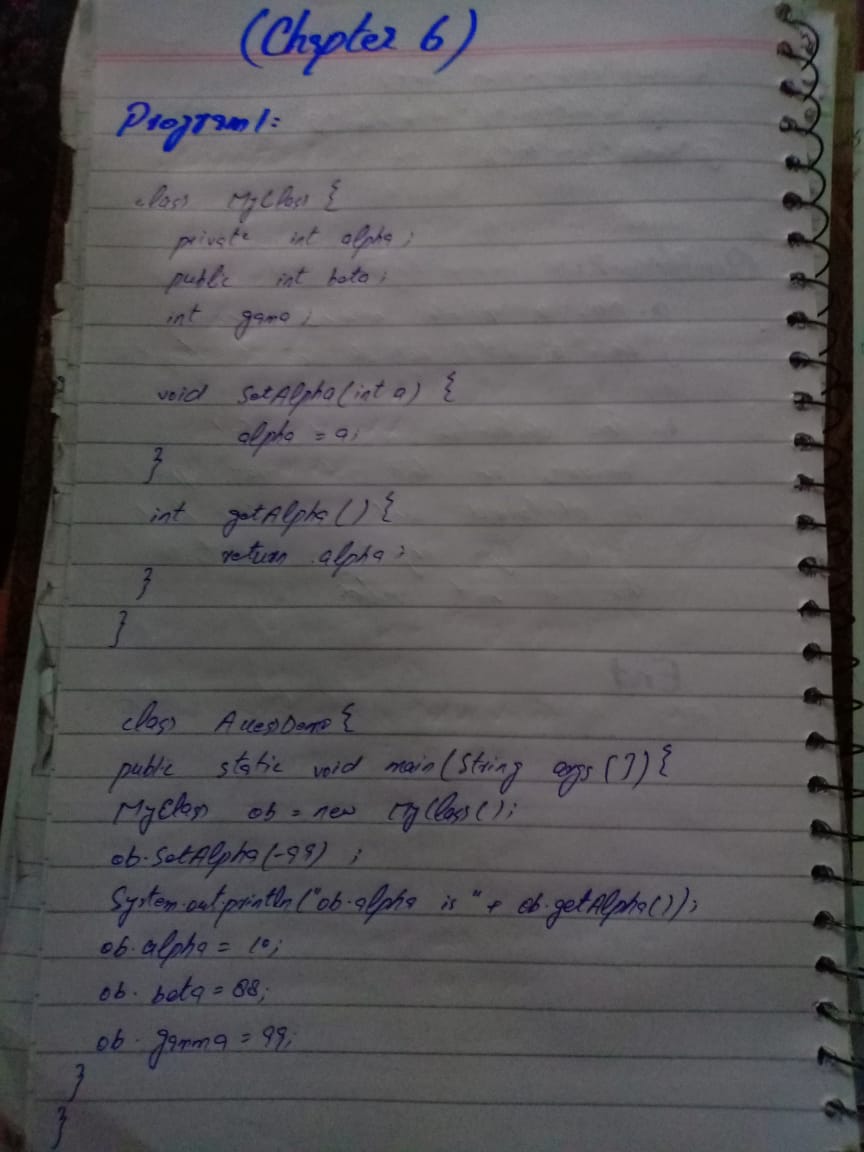 (Chapter 6)
Program 1:
class MyClass {
private int alpha;
public int beta;
int gama;
void SetAlpha(int a) {
alpha = a;
}
int getAlpha() {
return alpha;
}
}
class AccessDemo {
public static void main(String args []) {
MyClass ob = new MyClass();
ob.SetAlpha(-99) ;
System.out.println("ob.alpha is " + ob.getAlpha());
ob.alpha = 10;
ob. beta = 88;
ob. gamma = 99;
}
}